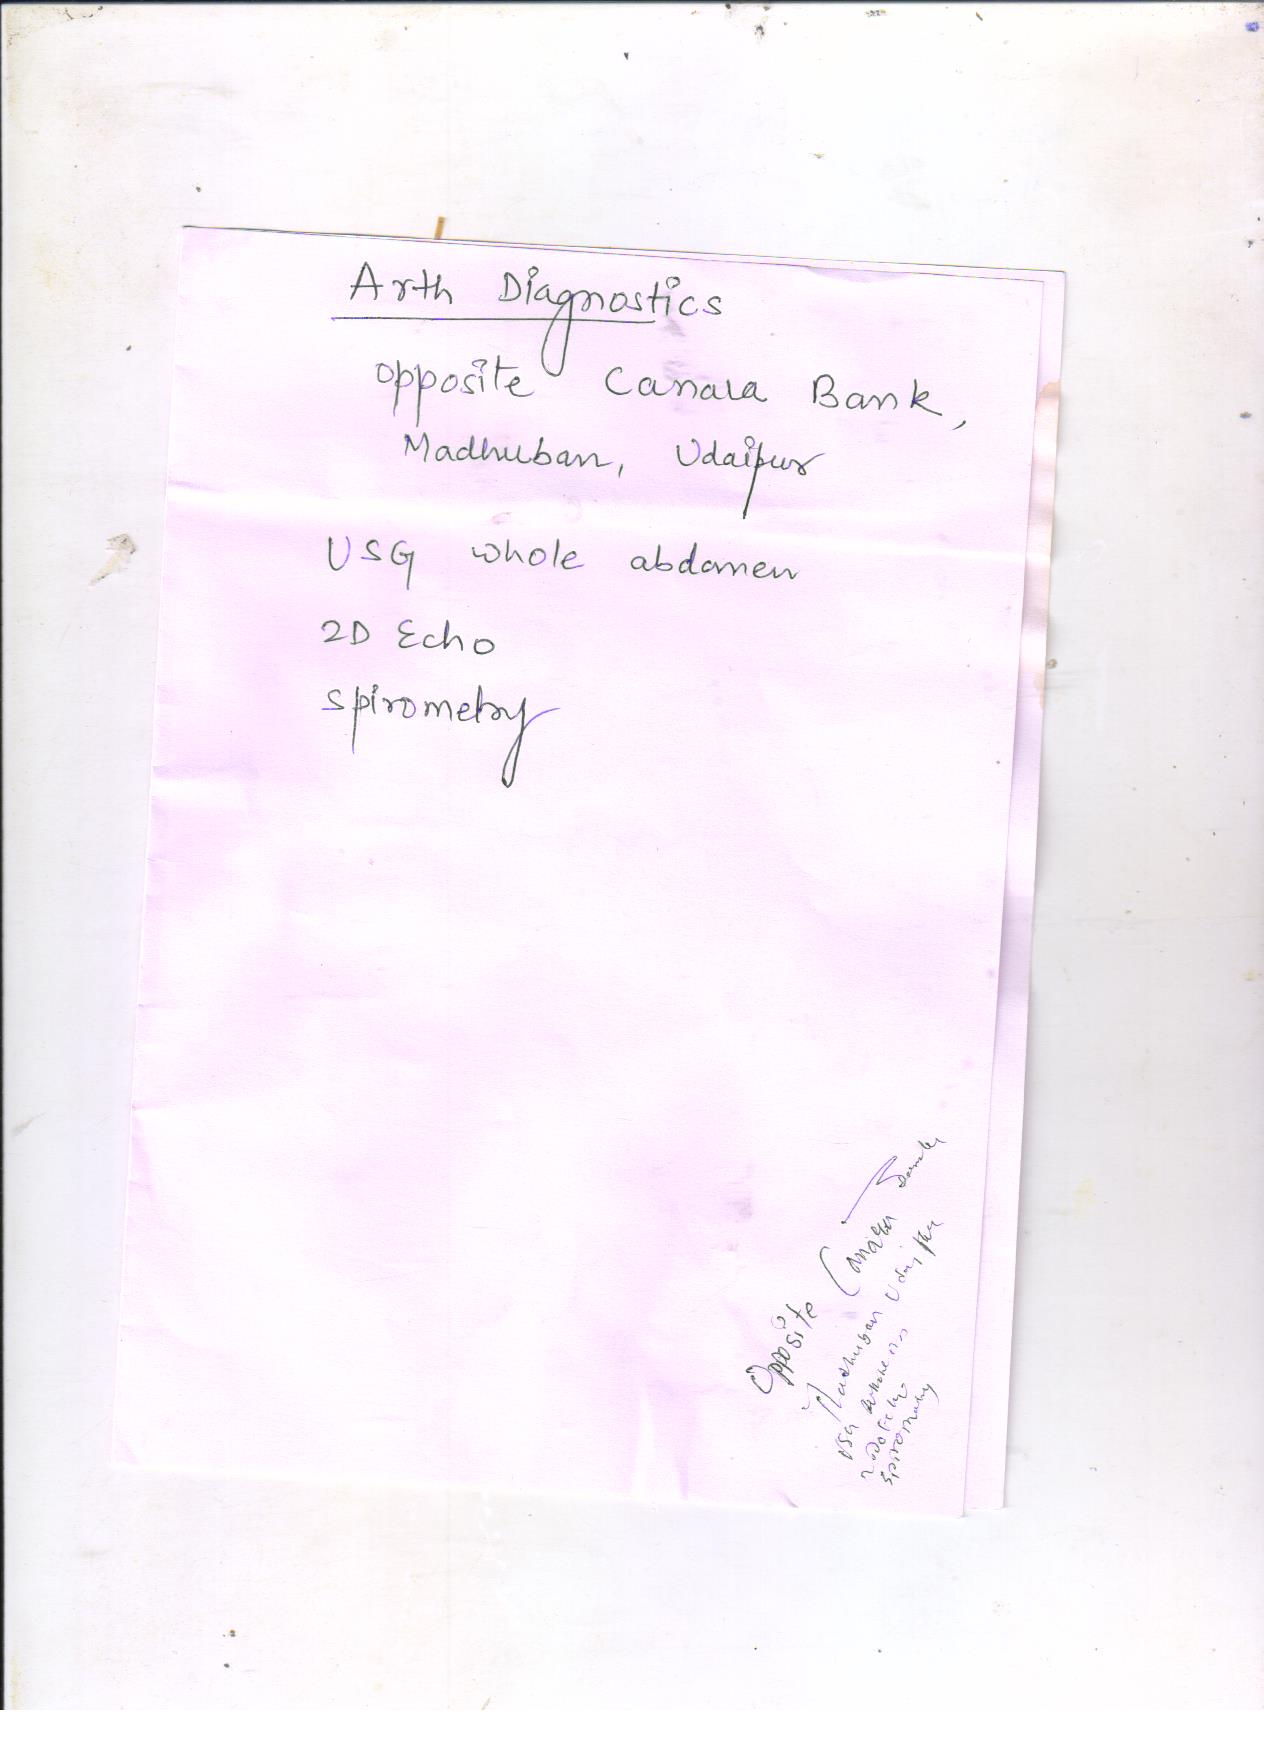 Arth Diagnostics
opposite Canara Bank,
Madhuban, Udaipur
USG whole abdomen
2D Echo
Spirometry
Opposite Canara
Madhuban Udaipur
USG whole
Spirometry